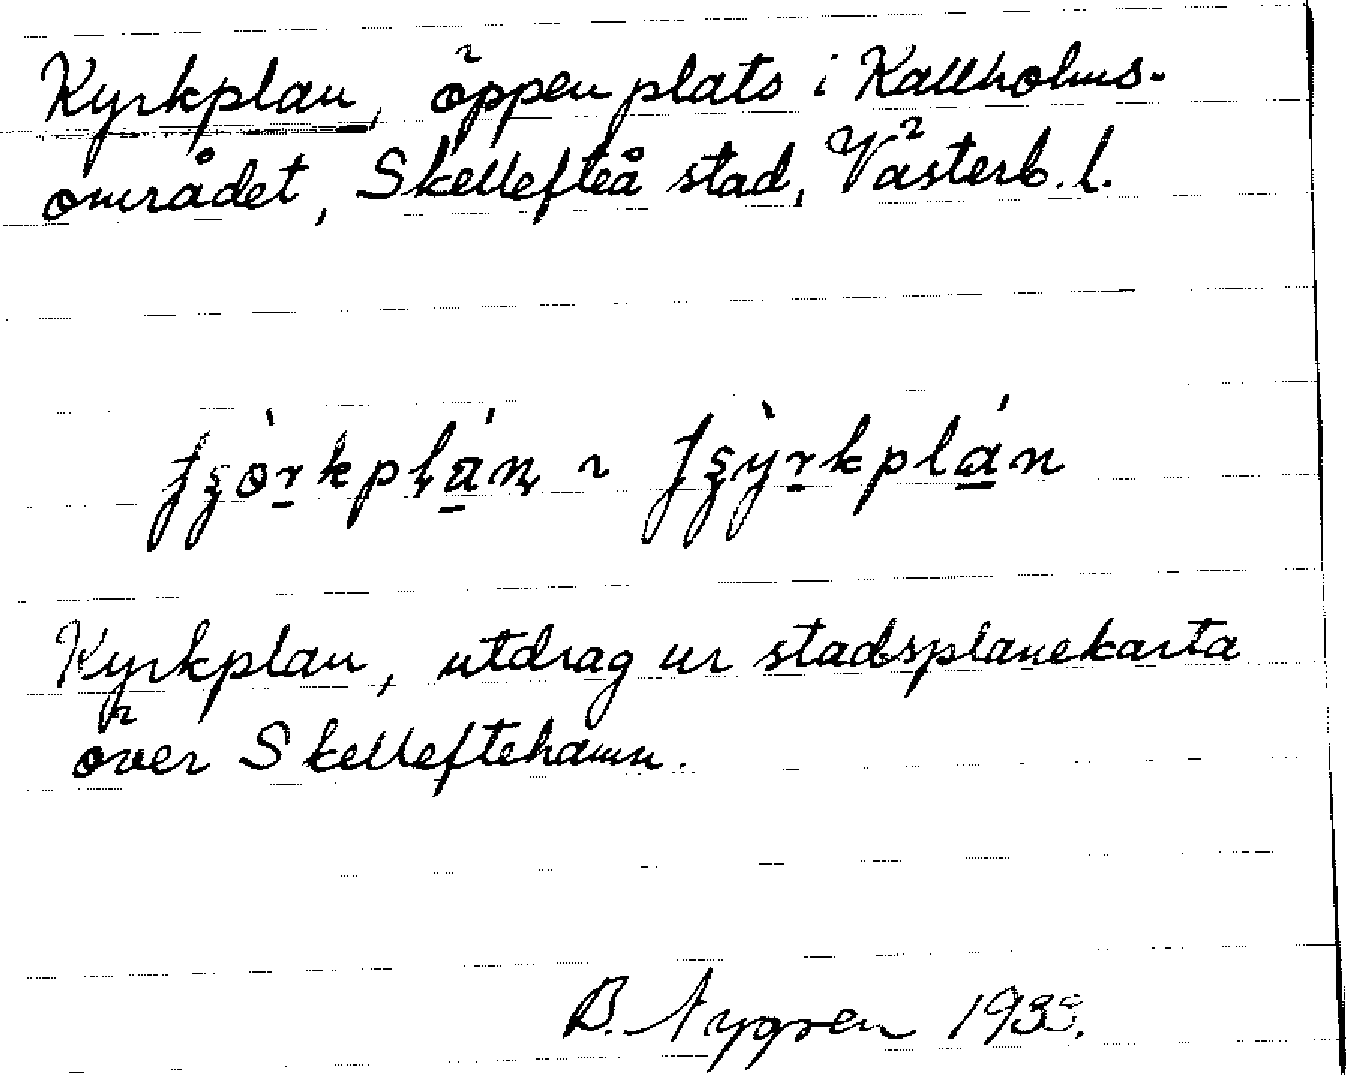 Kyrkplan, öppen plats i Kallholms-
området, Skellefteå stad, Västerb. l.
Kyrkplan, utdrag ur stadsplanekarta
över Skelleftehamn.
B. Nygren